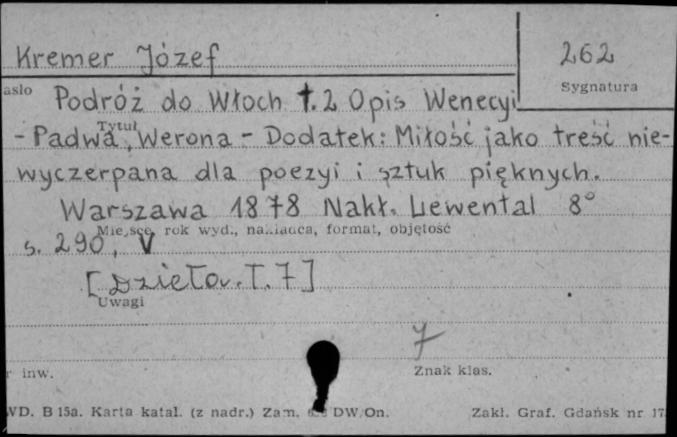 Kremer Józef 262
asło Sygnatura
Podróż do Włoch t.2 Opis Wenecyi
Tytuł
- Padwa, Werona - Dodatek: Miłość jako treść nie-
wyczerpana dla poezyi i sztuk pięknych.
Warszawa 1878 Nakł. Lewental 8°
Miejsce, rok wyd., nakładca, format, objętość
s. 290, V
[Dzieła. T. 7]
Uwagi
7
r inw. Znak klas.
WD. B 15a. Karta katal. (z nadr.) Zam. DW/On. Zakł. Graf. Gdańsk nr 17